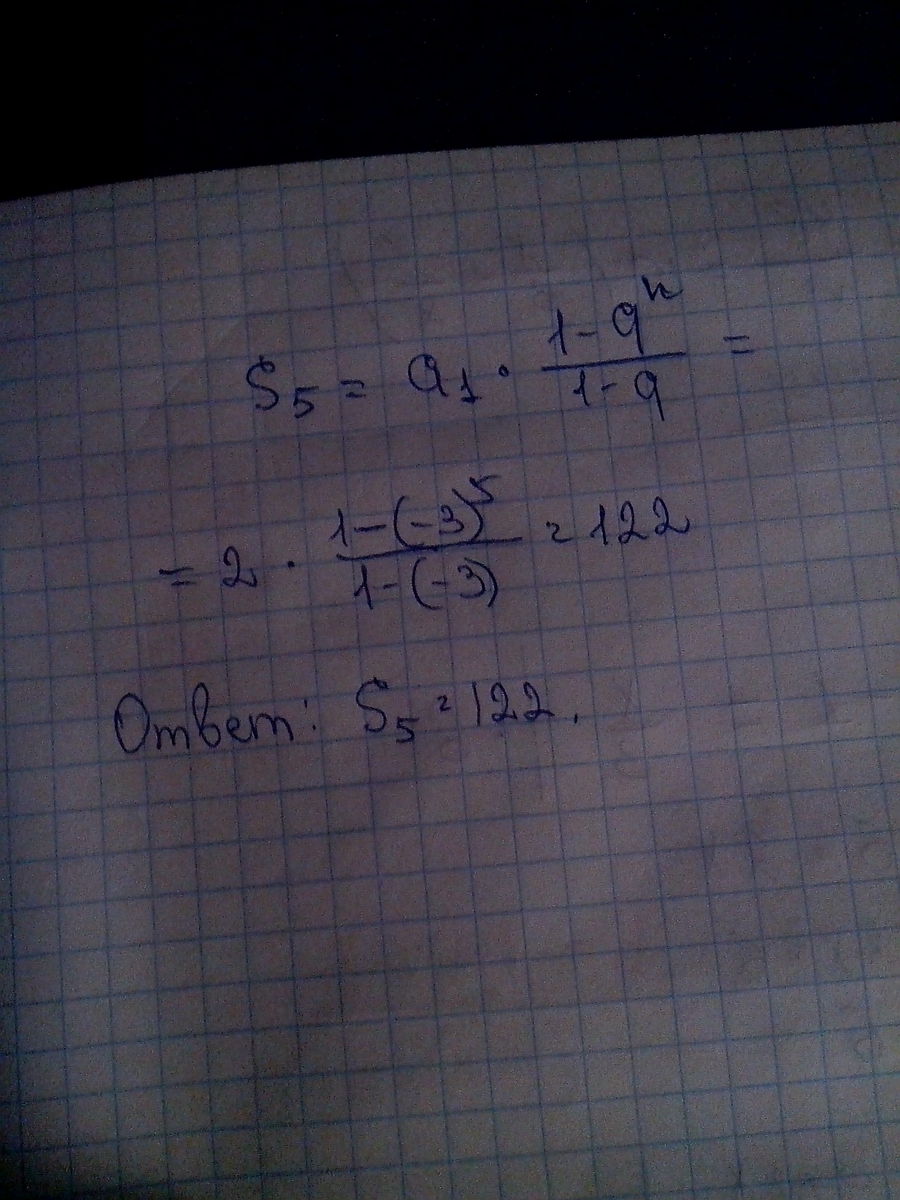 S₅ = a₁ · (1 - qⁿ)/(1 - q) =
= 2 · (1-(-3)⁵)/(1-(-3)) = 122
Ответ: S₅ = 122.